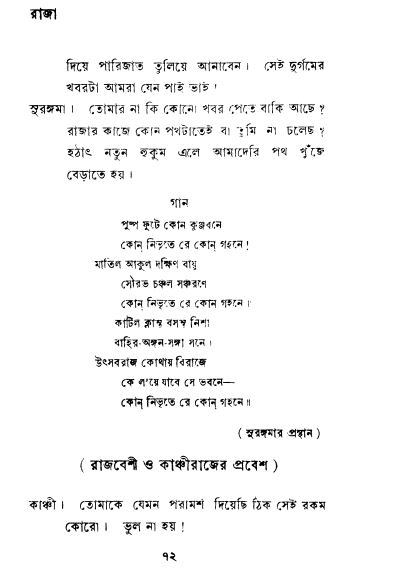 রাজা
দিয়ে পারিজাত তুলিয়ে আনাবেন। সেই দুর্গমের
খবরটা আমরা যেন পাই ভাই!
সুরঙ্গমা। তোমার না কি কোনো খবর পেতে বাকি আছে?
রাজার কাজে কোন পথটাতেই বা তুমি না চলেছ?
হঠাৎ নতুন হুকুম এলে আমাদেরি পথ খুঁজে
বেড়াতে হয়।
গান
পুষ্প ফুটে কোন কুঞ্জবনে
কোন্ নিভৃতে রে কোন্ গহনে!
মাতিল আকুল দক্ষিণ বায়ু
সৌরভ চঞ্চল সঞ্চরণে
কোন্ নিভৃতে রে কোন্ গহনে।
কাটিল ক্লান্ত বসন্ত নিশা
বাহির-অঙ্গন-সঙ্গী সনে।
উৎসবরাজ কোথায় বিরাজে
কে ল'য়ে যাবে সে ভবনে—
কোন্ নিভৃতে রে কোন্ গহনে॥
( সুরঙ্গমার প্রস্থান )
( রাজবেশী ও কাঞ্চীরাজের প্রবেশ )
কাঞ্চী। তোমাকে যেমন পরামর্শ দিয়েছি ঠিক সেই রকম
কোরো। ভুল না হয়!
৭২